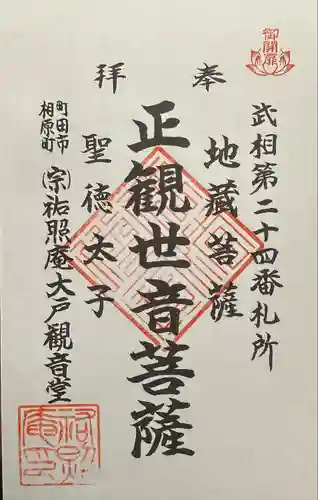 御開扉
奉
拝
武相第二十四番札所
地蔵菩薩
正観世音菩薩
聖徳太子
町田市
相原町
(宗)祐照庵大戸観音堂